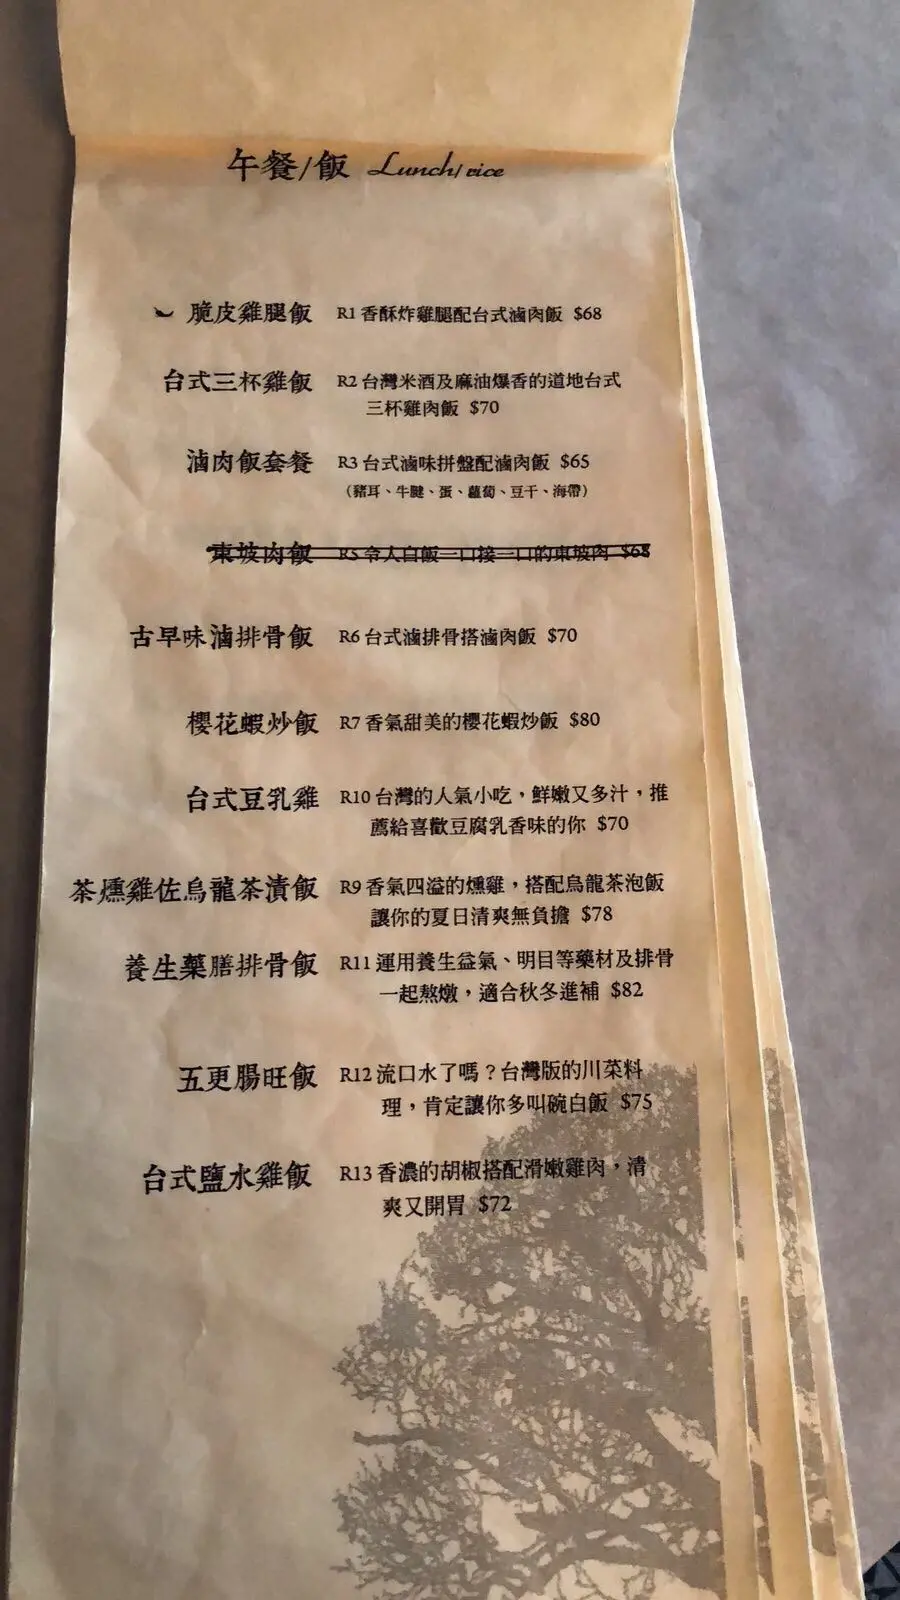 午餐/飯 Lunch/rice
脆皮雞腿飯 R1 香酥炸雞腿配台式滷肉飯 $68
台式三杯雞飯 R2 台灣米酒及麻油爆香的道地台式
三杯雞肉飯 $70
滷肉飯套餐 R3 台式滷味拼盤配滷肉飯 $65
（豬耳、牛腱、蛋、蘿蔔、豆干、海帶）
東坡肉飯 R5 令人白飯一口接一口的東坡肉 $68
古早味滷排骨飯 R6 台式滷排骨搭滷肉飯 $70
櫻花蝦炒飯 R7 香氣甜美的櫻花蝦炒飯 $80
台式豆乳雞 R10 台灣的人氣小吃，鮮嫩又多汁，推
薦給喜歡豆腐乳香味的你 $70
茶燻雞佐烏龍茶漬飯 R9 香氣四溢的燻雞，搭配烏龍茶泡飯
讓你的夏日清爽無負擔 $78
養生藥膳排骨飯 R11 運用養生益氣、明目等藥材及排骨
一起熬燉，適合秋冬進補 $82
五更腸旺飯 R12 流口水了嗎？台灣版的川菜料
理，肯定讓你多叫碗白飯 $75
台式鹽水雞飯 R13 香濃的胡椒搭配滑嫩雞肉，清
爽又開胃 $72